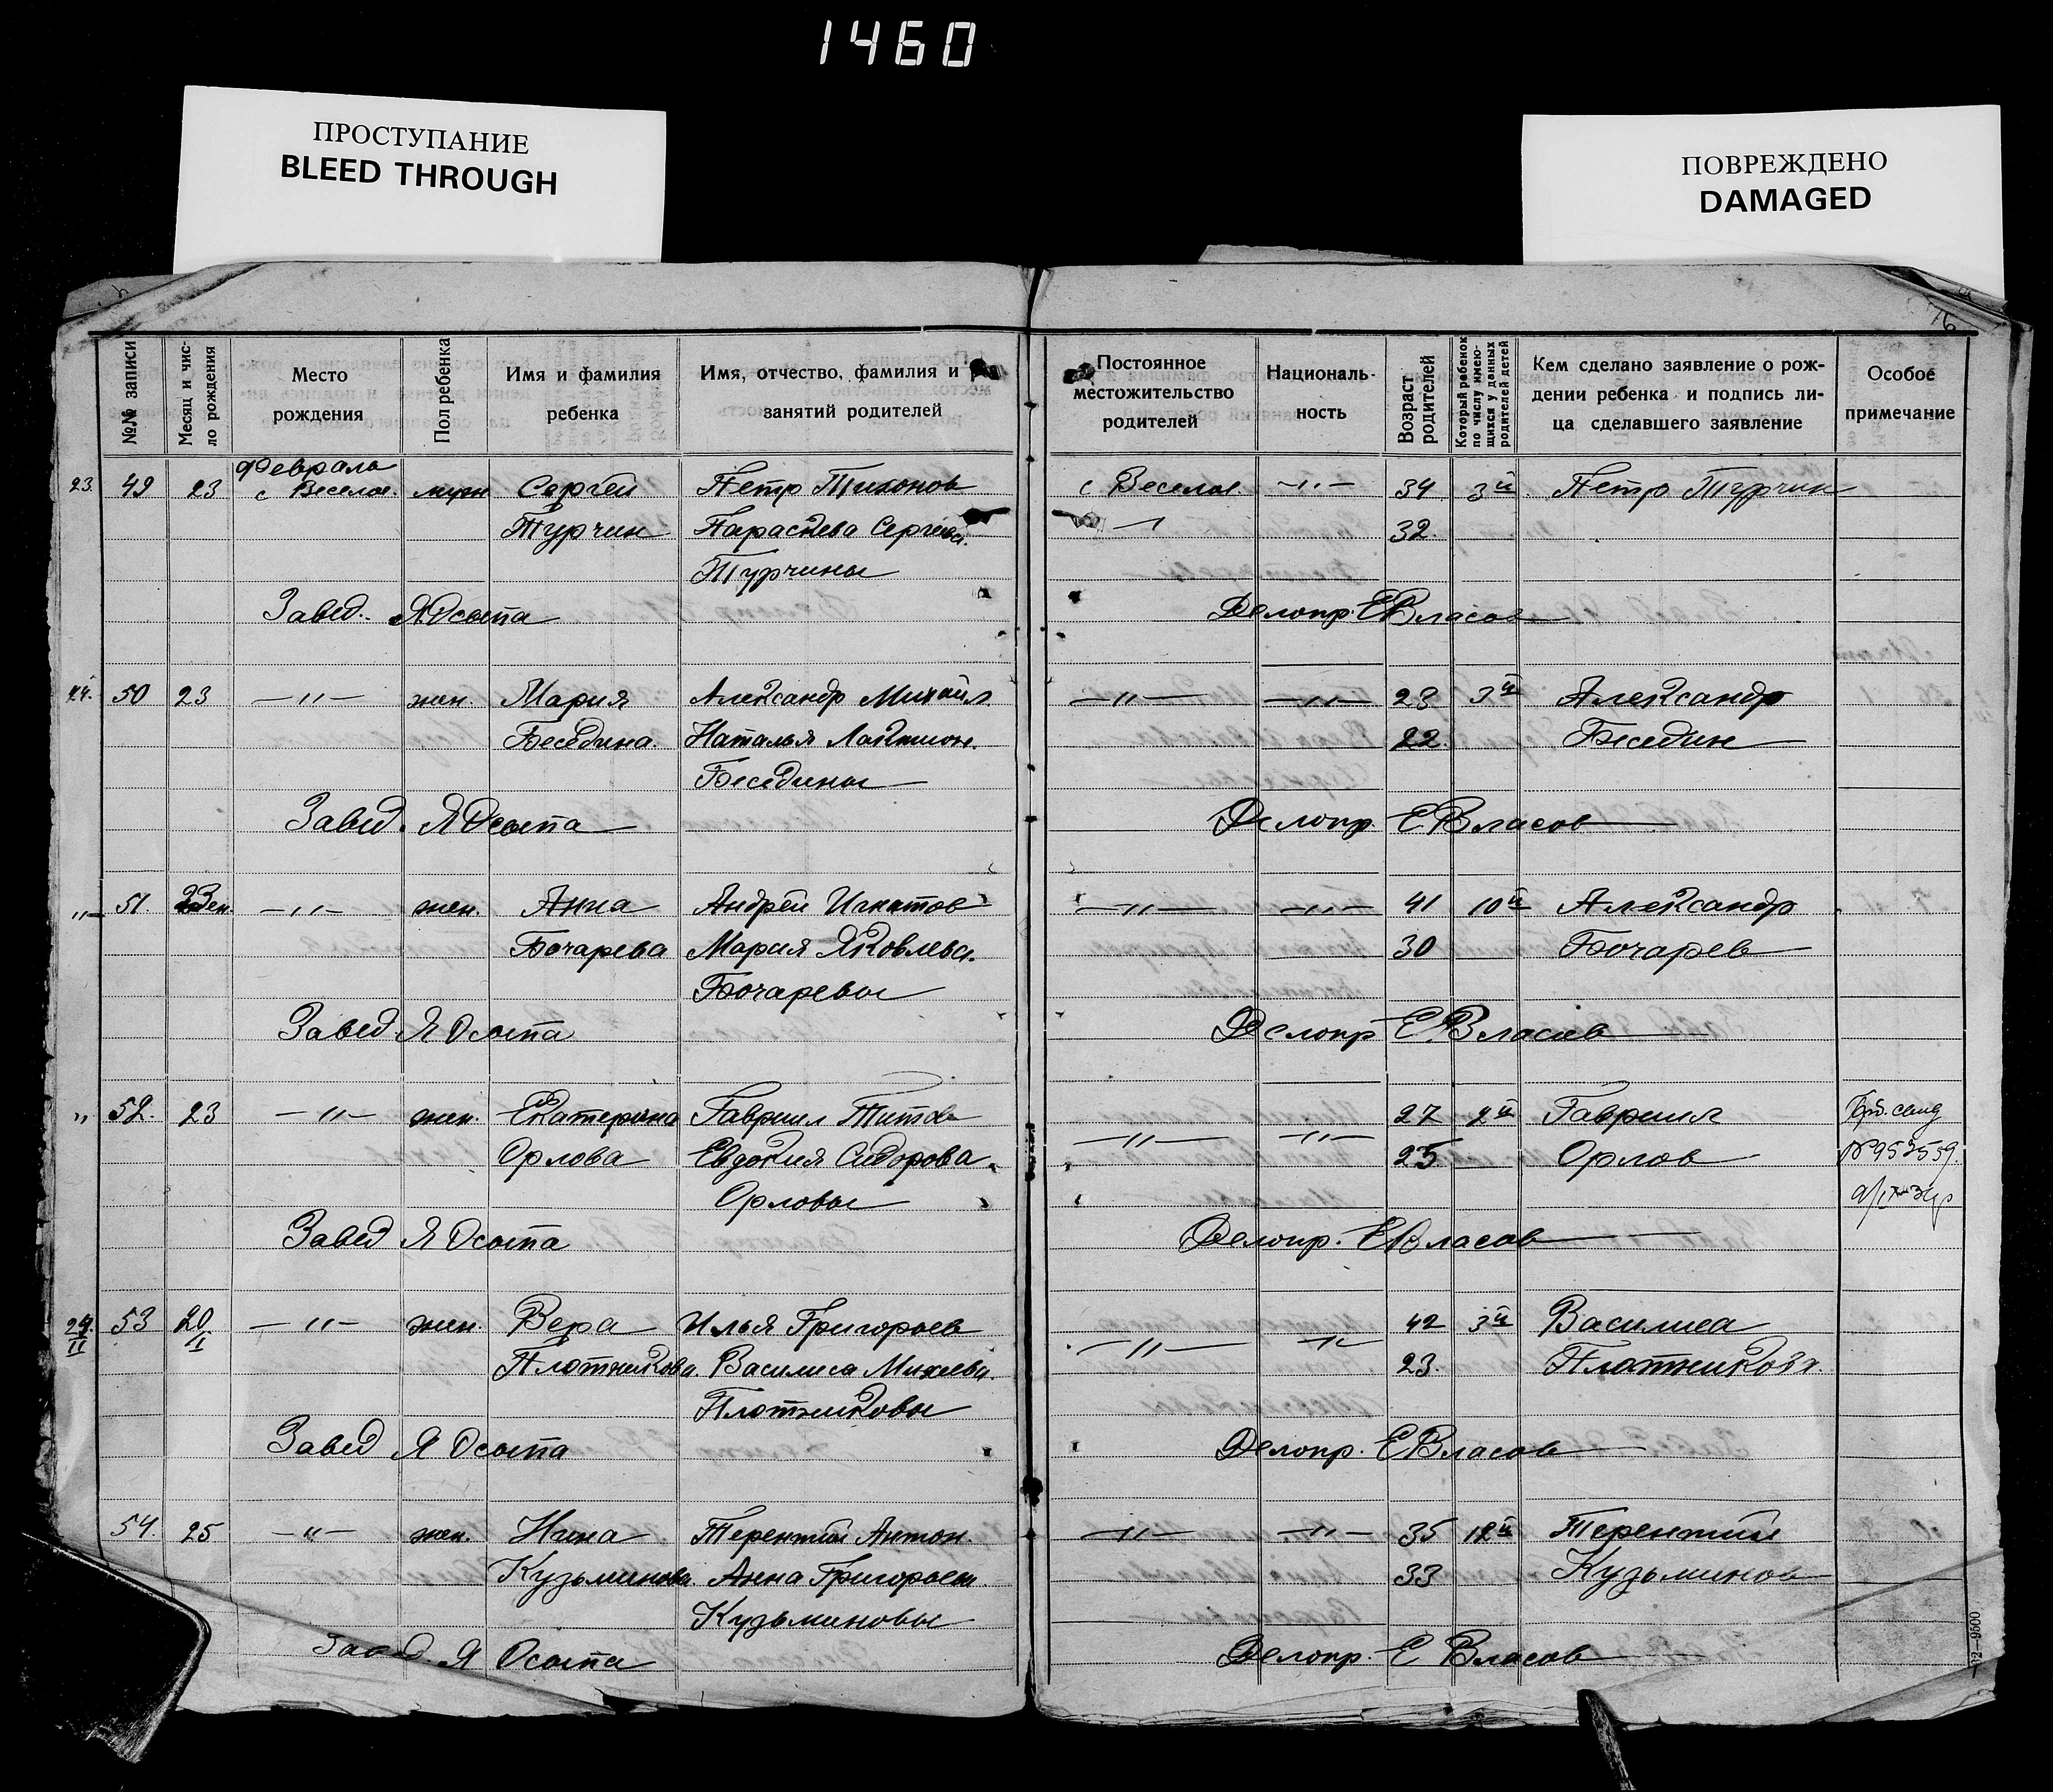 1460
ПРОСТУПАНИЕ
BLEED THROUGH
ПОВРЕЖДЕНО
DAMAGED
76
№№ записи
Месяц и чис-
ло рождения
Место
рождения
Пол ребенка
Имя и фамилия
ребенка
Имя, отчество, фамилия и
занятий родителей
Постоянное
местожительство
родителей
Националь-
ность
Возраст
родителей
Который ребенок
по числу имею-
щихся у данных
родителей детей
Кем сделано заявление о рож-
дении ребенка и подпись ли-
ца сделавшего заявление
Особое
примечание
Февраль
23. 49 23 с Веселое. муж Сергей Петр Тихонов с Веселое. —"— 34 3й Петр Турчин
Турчин Параскева Сергеева. 32.
Турчины
Завед. Я Осыпа Делопр. ЕВласов
24. 50 23 —"— жен. Мария Александр Михайл —"— —"— 23 3й Александр
Беседина. Наталья Лактион. 22. Беседин
Беседины
Завед. Я Осыпа Делопр. ЕВласов
"— 51. 23 —"— жен. Анна Андрей Игнатов —"— —"— 41 10й Александр
Бочарева Мария Яковлева. 30 Бочарев
Бочаревы
Завед. Я Осыпа Делопр ЕВласов
" 52. 23 —"— жен. Екатерина Гавриил Титов 27 2й Гавриил
Орлова Евдокия Сидорова. —"— —"— 25 Орлов №953559.
Орловы
Завед Я Осыпа Делопр. ЕВласов
24/II 53 20/II —"— жен. Вера Илья Григорьев 42 3й Василиса
Плотникова. Василиса Михеева. —"— —"— 23. Плотникова.
Плотниковы
Завед Я Осыпа Делопр. ЕВласов
54. 25 —"— жен. Нина Терентий Антон. —"— —"— 35 12й Терентий
Кузьминова. Анна Григорьев. 33 Кузьминов
Кузьминовы
Завед Я Осыпа Делопр. Е Власов
32—9500